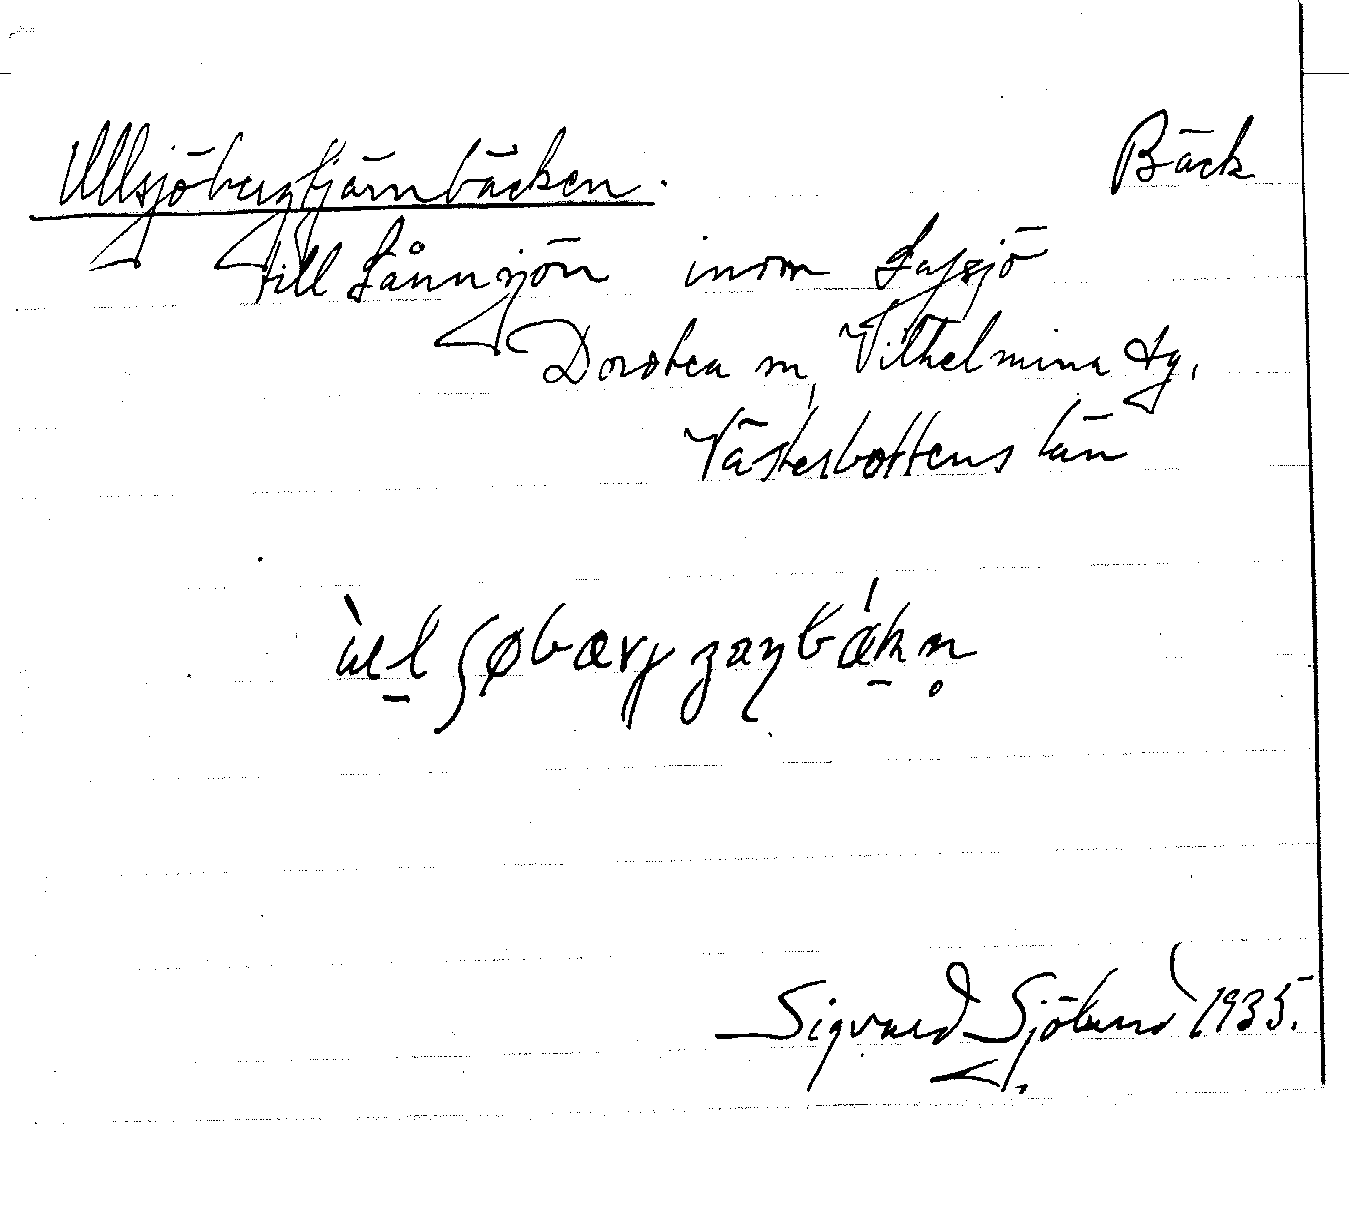 Ullsjöbergtjärnbäcken. Bäck
till Lånnsjön inom Lajksjö
Dorotea m, Vilhelmina tg.
Västerbottens län
Sigvard Sjölund 1935.